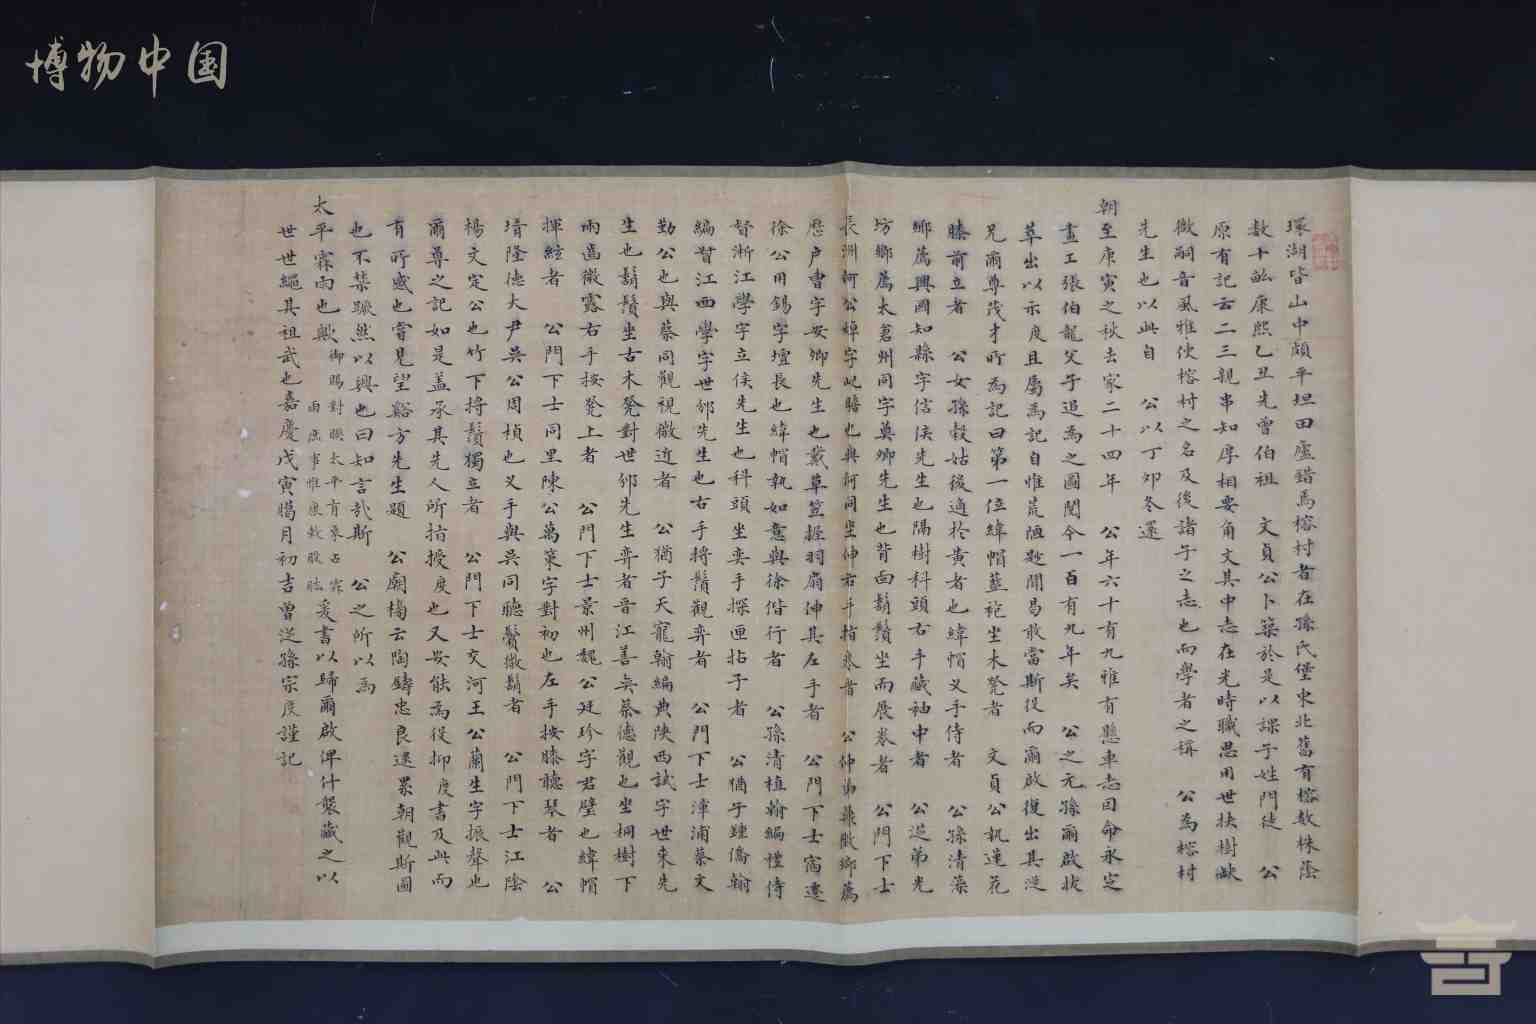 博物中国
環湖皆山中頗平坦田廬錯焉榕村者在孫氏堡東北舊有榕数株蔭
数十畝康熙乙丑先曾伯祖 文貞公卜築於是以課子姓門徒 公
原有記云二三親串知厚相要角文其中志在光時職思用世扶樹缺
微嗣音風雅使榕村之名及後諸子之志也而學者之稱 公為榕村
先生也以此自 公以丁卯冬還
朝至庚寅之秋去家二十四年 公年六十有九雅有懸車志因命永定
畫工張伯龍父子追為之圖閱今一百有九年矣 公之元孫爾啟狀
草出以示度且屬為記自惟荒陋遜閒曷敢當斯役而爾啟復出其從
兄爾尊茂才所為記曰第一位緯帽藍袍坐木凳者 文貞公執蓮花
膝前立者 公女孫穀姑後適於黃者也緯帽义手侍者 公孫清藻
鄉薦興國知縣字信侯先生也隔樹科頭右手藏袖中者 公從弟光
坊鄉薦太倉州同字奠卿先生也背面鬍鬚坐而展卷者 公門下士
長洲何公焯字屺瞻也與何同坐伸右手指卷者 公仲弟鼎徵鄉薦
歷户曹字安卿先生也戴草笠握羽扇伸其左手者 公門下士甯遠
徐公用錫字壇長也緯帽執如意與徐偕行者 公孫清植翰編禮侍
督淅江學字立侯先生也科頭坐奕手探匣拈子者 公猶子鍾僑翰
編督江西學字世邠先生也右手捋鬚觀弈者 公門下士漳浦蔡文
勤公也與蔡同觀視微近者 公猶子天寵翰編典陝西試字世來先
生也鬍鬚坐古木凳對世邠先生弈者晋江善弈蔡德觀也坐桐樹下
兩齒微露右手按凳上者 公門下士景州魏公廷珍字君璧也緯帽
揮絃者 公門下士同里陳公萬策字對初也左手按膝聽琴者 公
壻隆德大尹吳公周楨也义手與吳同聽鬢微鬍者 公門下士江陰
楊文定公也竹下捋鬚獨立者 公門下士交河王公蘭生字振聲也
爾尊之記如是盖承其先人所指授度也又安能為役抑度書及此而
有所感也嘗見望谿方先生題 公廟楹云陶鑄忠良逮累朝觀斯圖
也不禁躍然以興也曰知言哉斯 公之所以為
太平霖雨也歟御賜對聯太平有象占霖雨庶事惟康敕股肱爰書以歸爾啟俾什襲藏之以
世世繩其祖武也嘉慶戊寅臈月初吉曾從孫宗度謹記